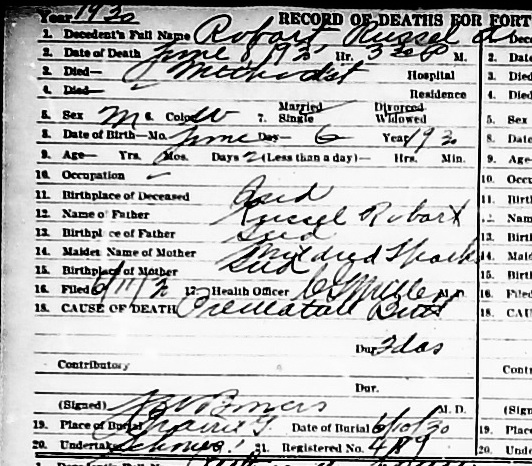 Year 1930 RECORD OF DEATHS FOR FORT
1. Decedent's Full Name Robart Russel
2. Date of Death June 8, 1930 Hr. 3 30 P M.
3. Died— Methodist Hospital
4. Died— Residence
5. Sex M 6. Color W 7. Married Single Divorced Widowed
8. Date of Birth—Mo. June Day— 6 Year 1930
9. Age— Yrs. Mos. Days 2 (Less than a day)— Hrs. Min.
10. Occupation
11. Birthplace of Deceased Ind
12. Name of Father Russel Robart
13. Birthplace of Father Ind
14. Maiden Name of Mother Mildred
15. Birthplace of Mother Ind
16. Filed 6/11/3 17. Health Officer M. D.
18. CAUSE OF DEATH Premature Birth
Dur. 2 das
Contributory
Dur.
(Signed) M. D.
19. Place of Burial Prairie Date of Burial 6/10/30
20. Undertaker 21. Registered No. 489
2. Date
3. Died
4. Died
5. Sex
8. Date
9. Age
10. Occu
11. Birth
12. Nam
13. Birth
14. Maid
15. Birth
16. Filed
18. CAU
Cont
(Sign
19. Place
20. Unde